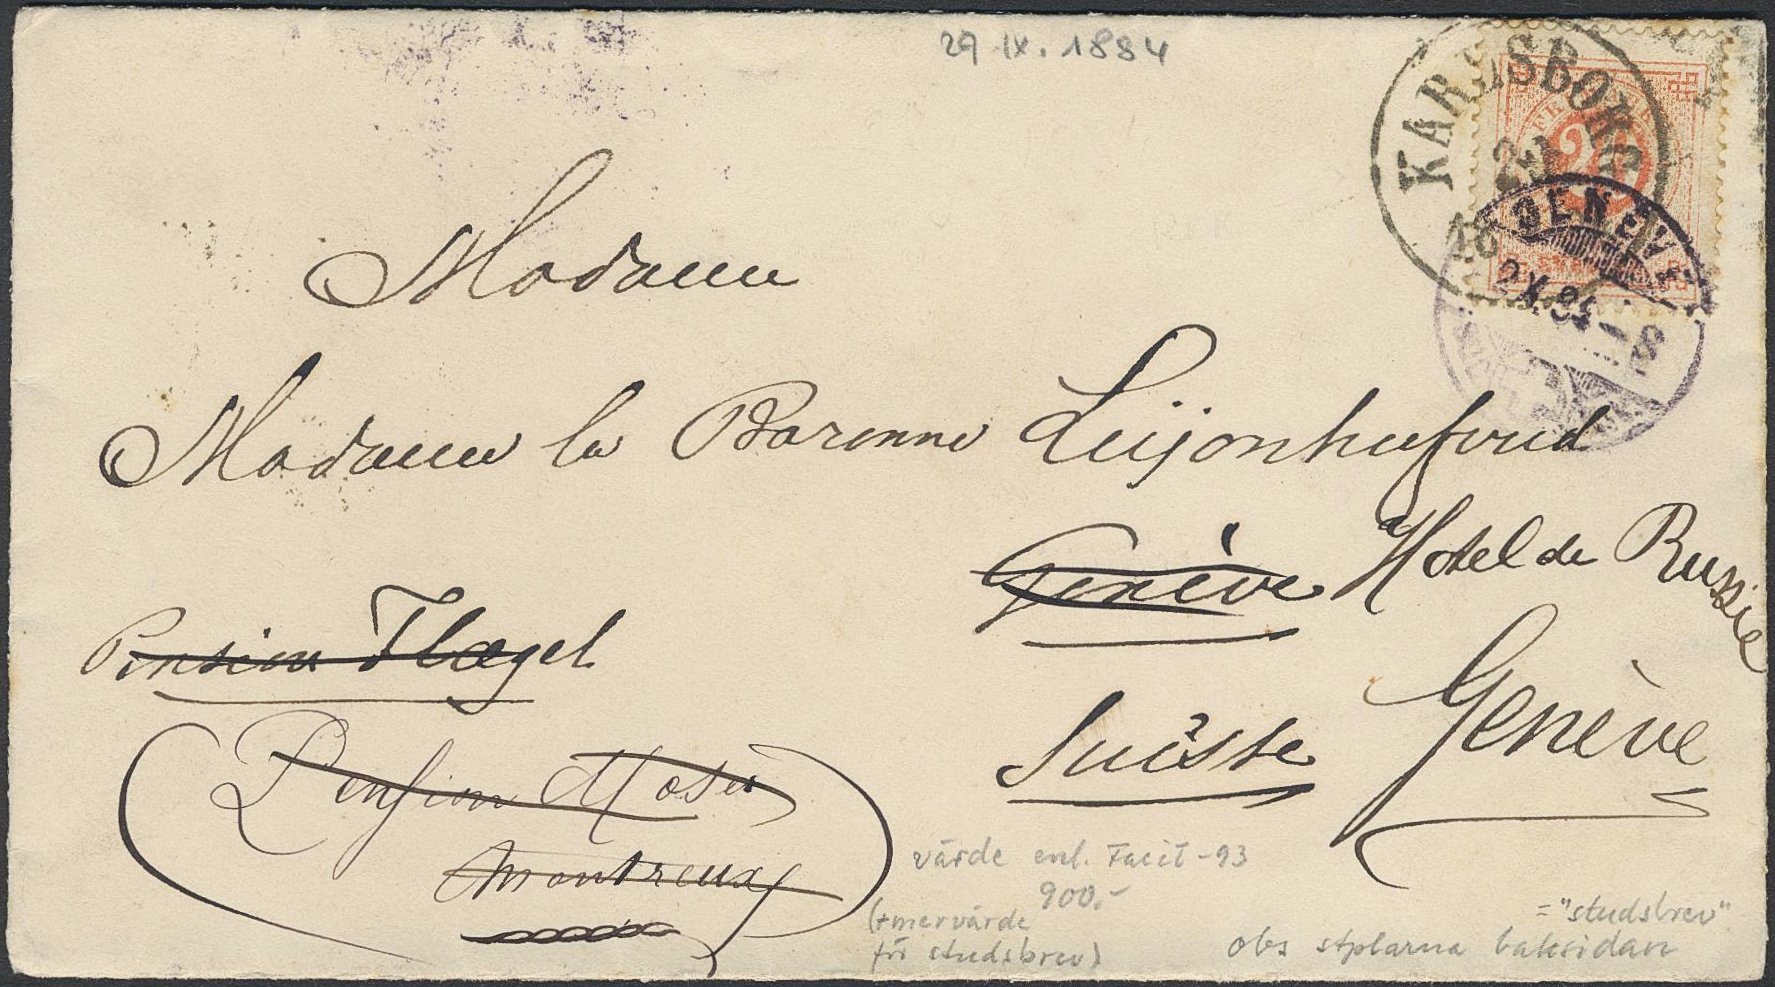 29 IX. 1884
KARLSBORG
20
GENÈVE
2 X. 84 — 8
Madame
Madame la Baronne Leijonhufvud
Genève Hotel de Russie
Pension Flaegel
Genève
Suisse
Pension Moser
Montreux
värde enl. Facit -93
900.-
(+mervärde
för studsbrev)
= "studsbrev"
obs stplarna baksidan